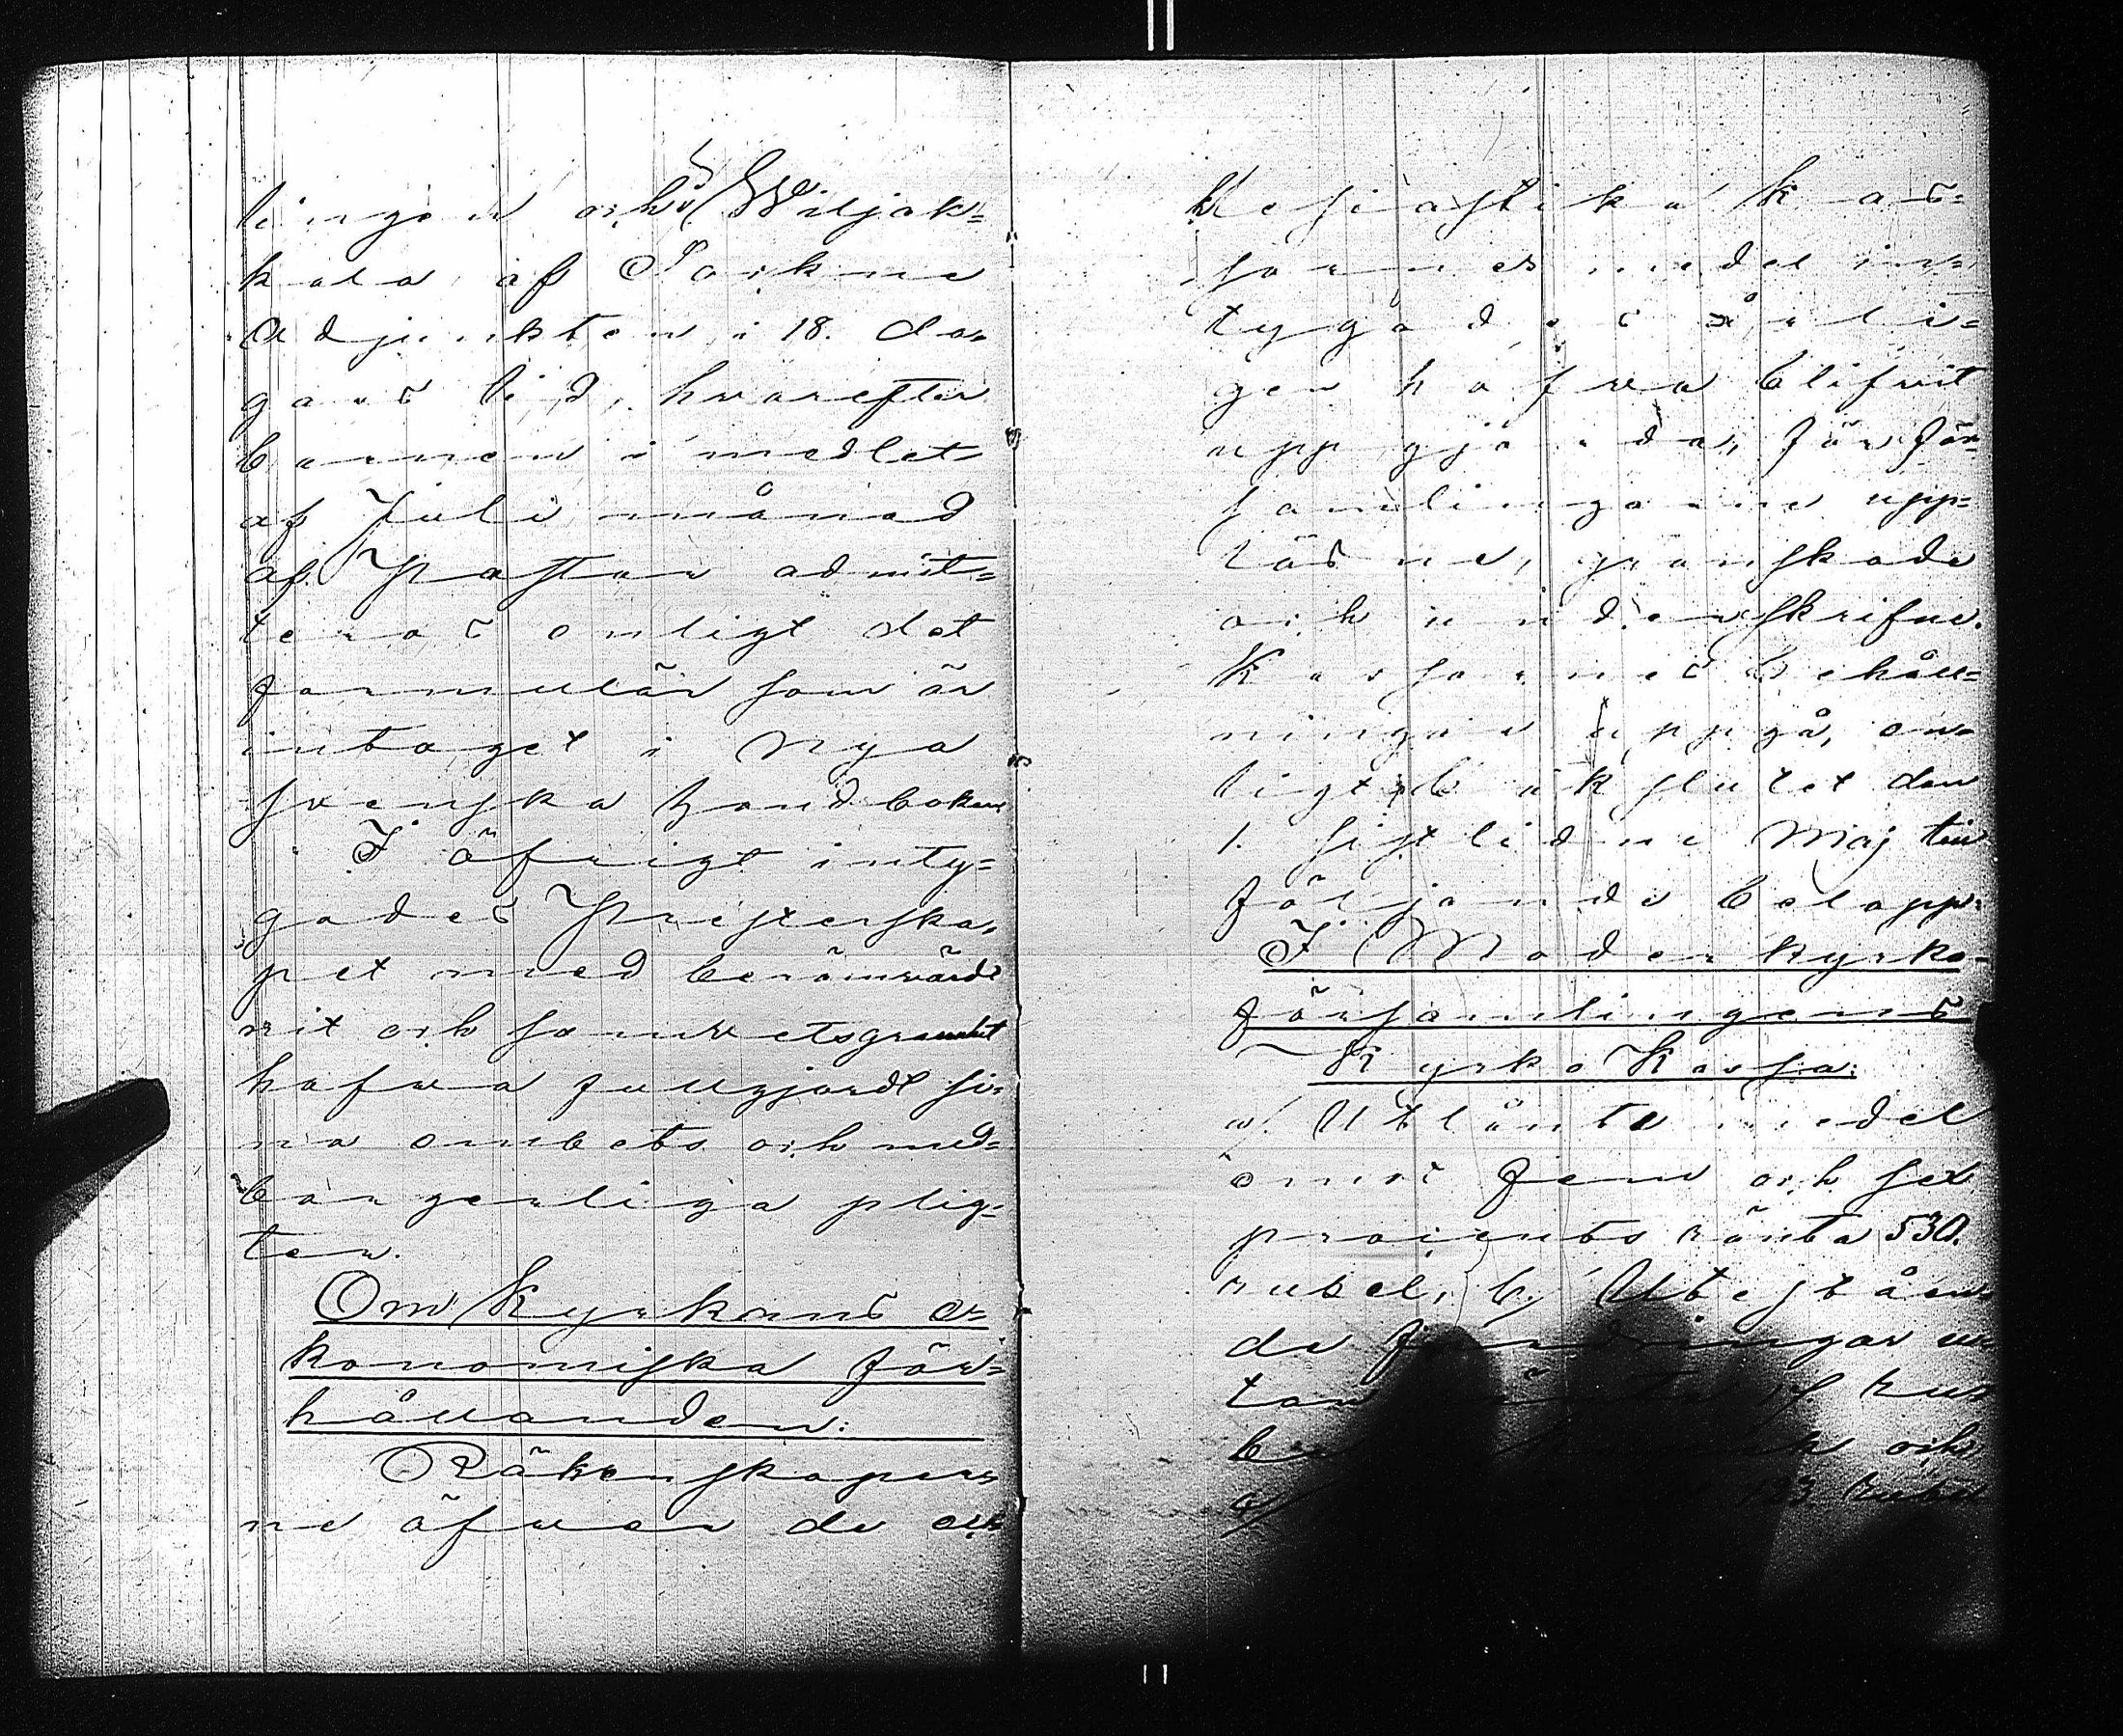 lingen och i Wiljak-
kala af Sockne
Adjunkten i 18. da-
gars tid, hvarefter
barnen i medlet
af Juli månad
af Pastor admit-
teras enligt det
formulär som är
intaget i Nya
svenska handboken
I öfrigt inty-
gades Presterska-
pet med berömvärdt
nit och samvetsgranhet
hafva fullgjordt si-
na embets och med-
borgerliga plig-
ter.
Om Kyrkans e-
konomiska för-
hållanden:
Räkenskaper-
ne öfver de eck
klesiastika kas-
sornes medel in-
tygades årli-
gen hafva blifvit
uppgjorda, för för-
samlingarne upp-
läsne, granskade
och underskrifne.
Kassornes behåll-
ningar uppgå, en-
ligt bokslutet den
1. sistlidne Maj till
följande belopp:
I Moderkyrko-
församlingens
Kyrko Kassa:
a/ Utlånte medel
emot fem och sex
procents ränta 530.
rubel, b/ Utestån-
de fordringar u-
tan ränta rub
och
c/ 123 rubel